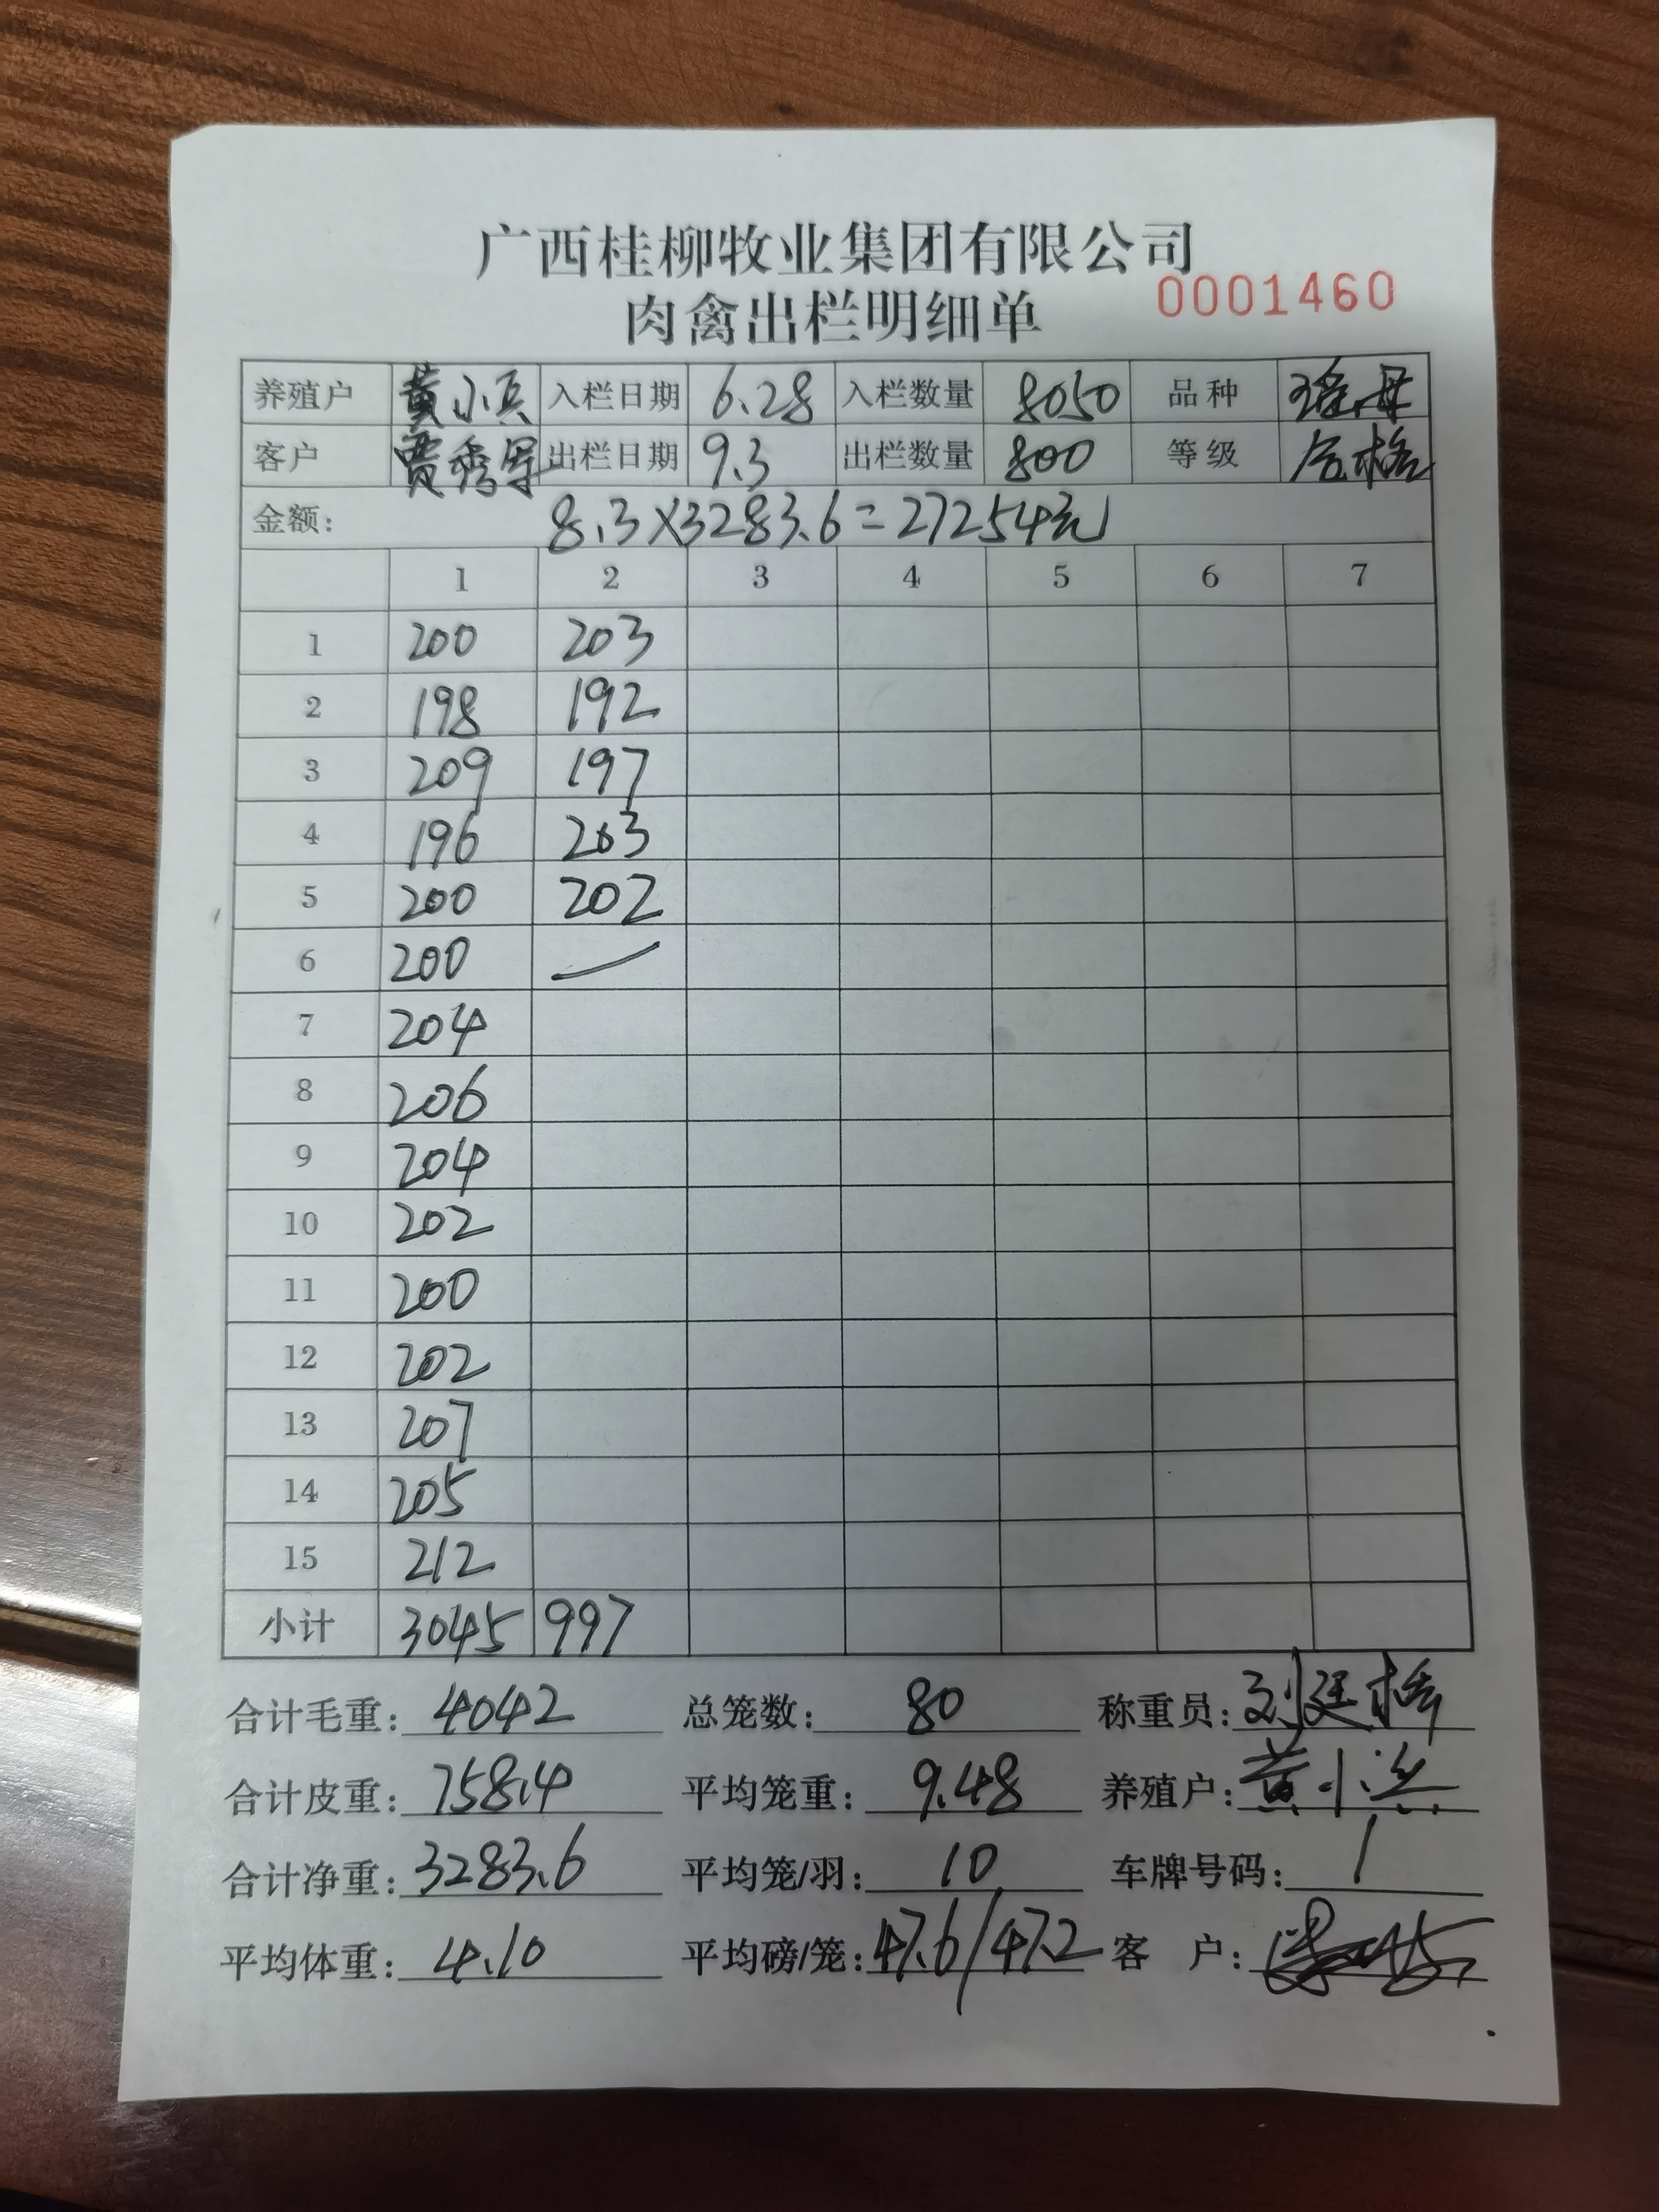 广西桂柳牧业集团有限公司
肉禽出栏明细单
0001460
养殖户 黄小兵 入栏日期 6.28 入栏数量 8050 品种 瑶母
客户 贾秀军 出栏日期 9.3 出栏数量 800 等级 合格
金额: 8.3×3283.6=27254元
1 2 3 4 5 6 7
1 200 203
2 198 192
3 209 197
4 196 203
5 200 202
6 200 —
7 204
8 206
9 204
10 202
11 200
12 202
13 207
14 205
15 212
小计 3045 997
合计毛重: 4042 总笼数: 80 称重员: 刘廷
合计皮重: 758.4 平均笼重: 9.48 养殖户: 黄小兵
合计净重: 3283.6 平均笼/羽: 10 车牌号码: /
平均体重: 4.10 平均磅/笼: 47.6/47.2 客 户: